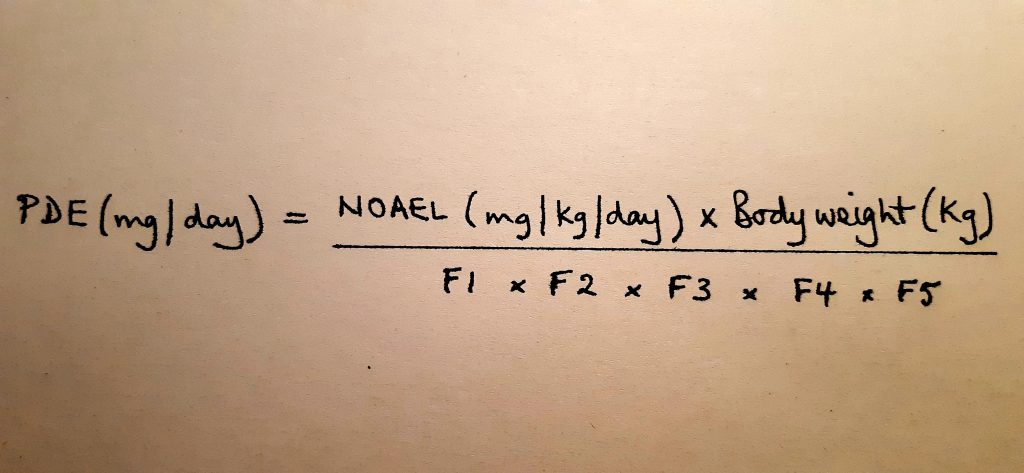 PDE (mg/day) = NOAEL (mg/kg/day) x Body weight (kg)
F1 x F2 x F3 x F4 x F5